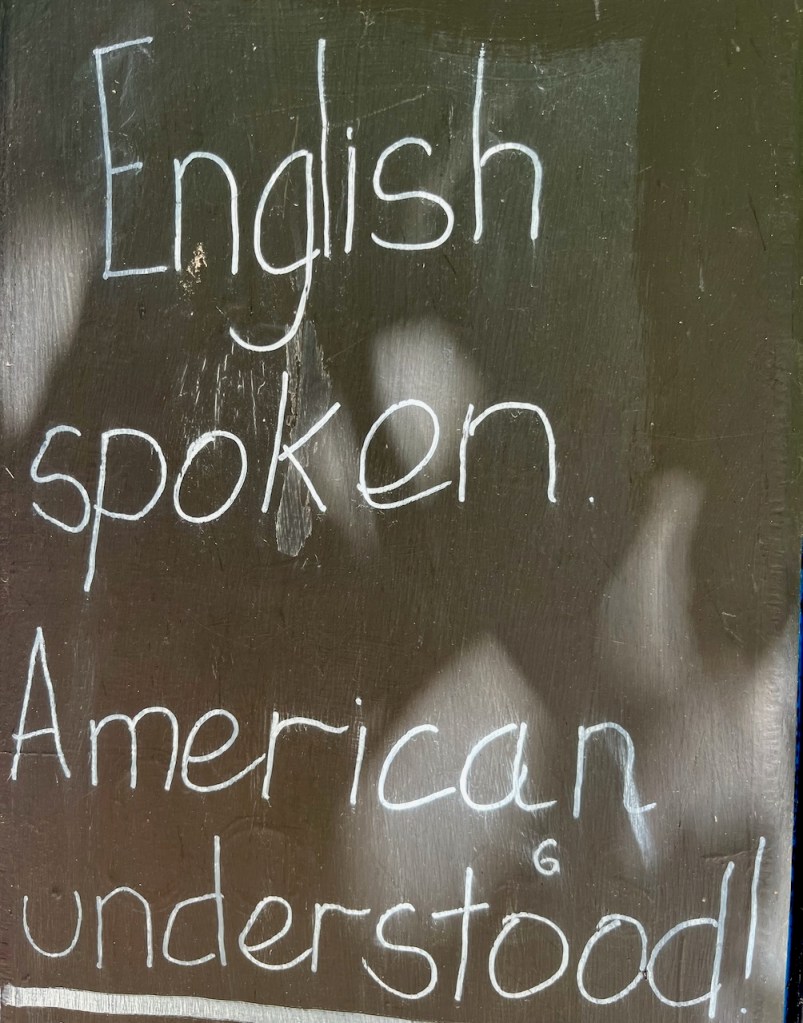 English
spoken.
American
G
understood!